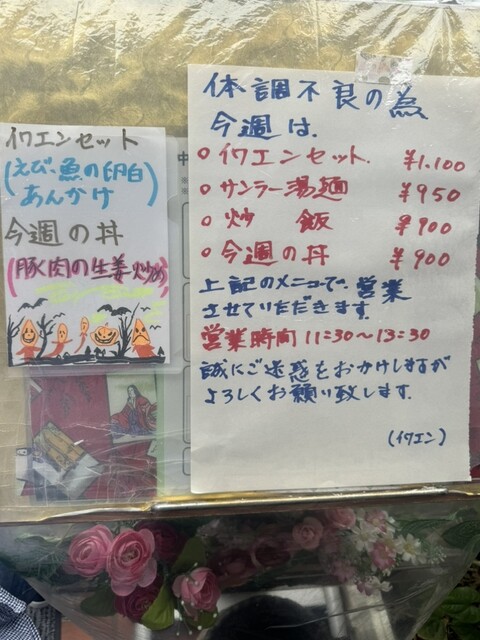 イワエンセット
(えび、魚の卵白
あんかけ)
今週の丼
(豚肉の生姜炒め)
体調不良の為
今週は、
○イワエンセット. ¥1.100
○サンラー湯麺 ¥950
○炒 飯 ¥900
○今週の丼 ¥900
上記のメニューで、営業
させていただきます。
営業時間 11:30〜13:30
誠にご迷惑をおかけしますが
よろしくお願い致します。
(イワエン)
中